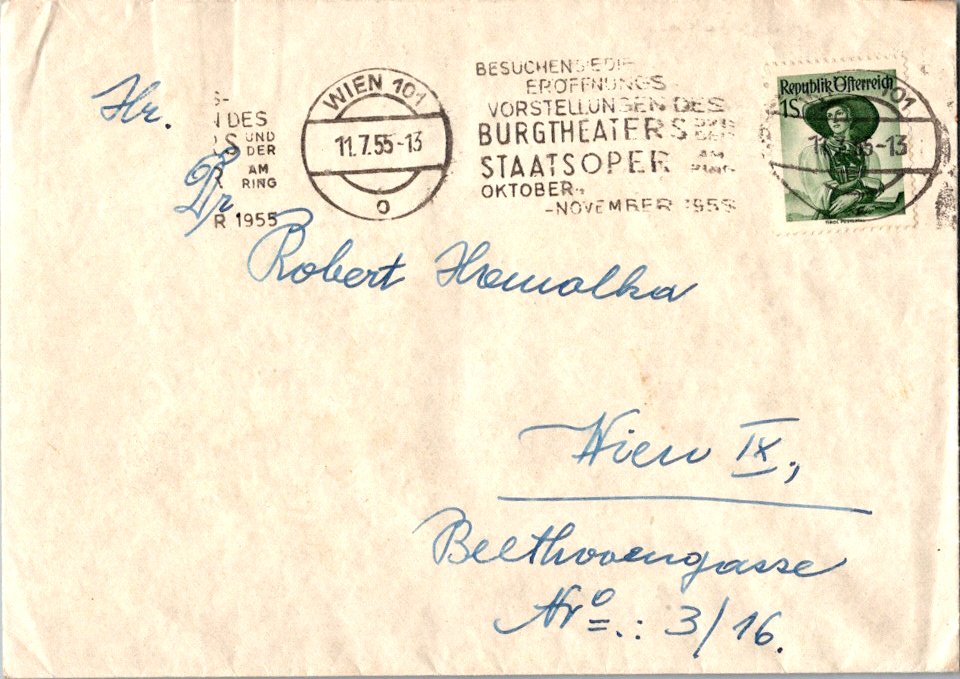 Hr.
Dr
Robert Homolka
Wien IX.,
Beethovengasse
Nr o.: 3/16.
S-
N DES
S UND DER
R AM RING
R 1955
WIEN 101
11.7.55-13
o
BESUCHEN SIE DIE
ERÖFFNUNGS
VORSTELLUNGEN DES
BURGTHEATERS UND DER
STAATSOPER AM RING
OKTOBER-
-NOVEMBER 1955
Republik Österreich
1S
101
-13